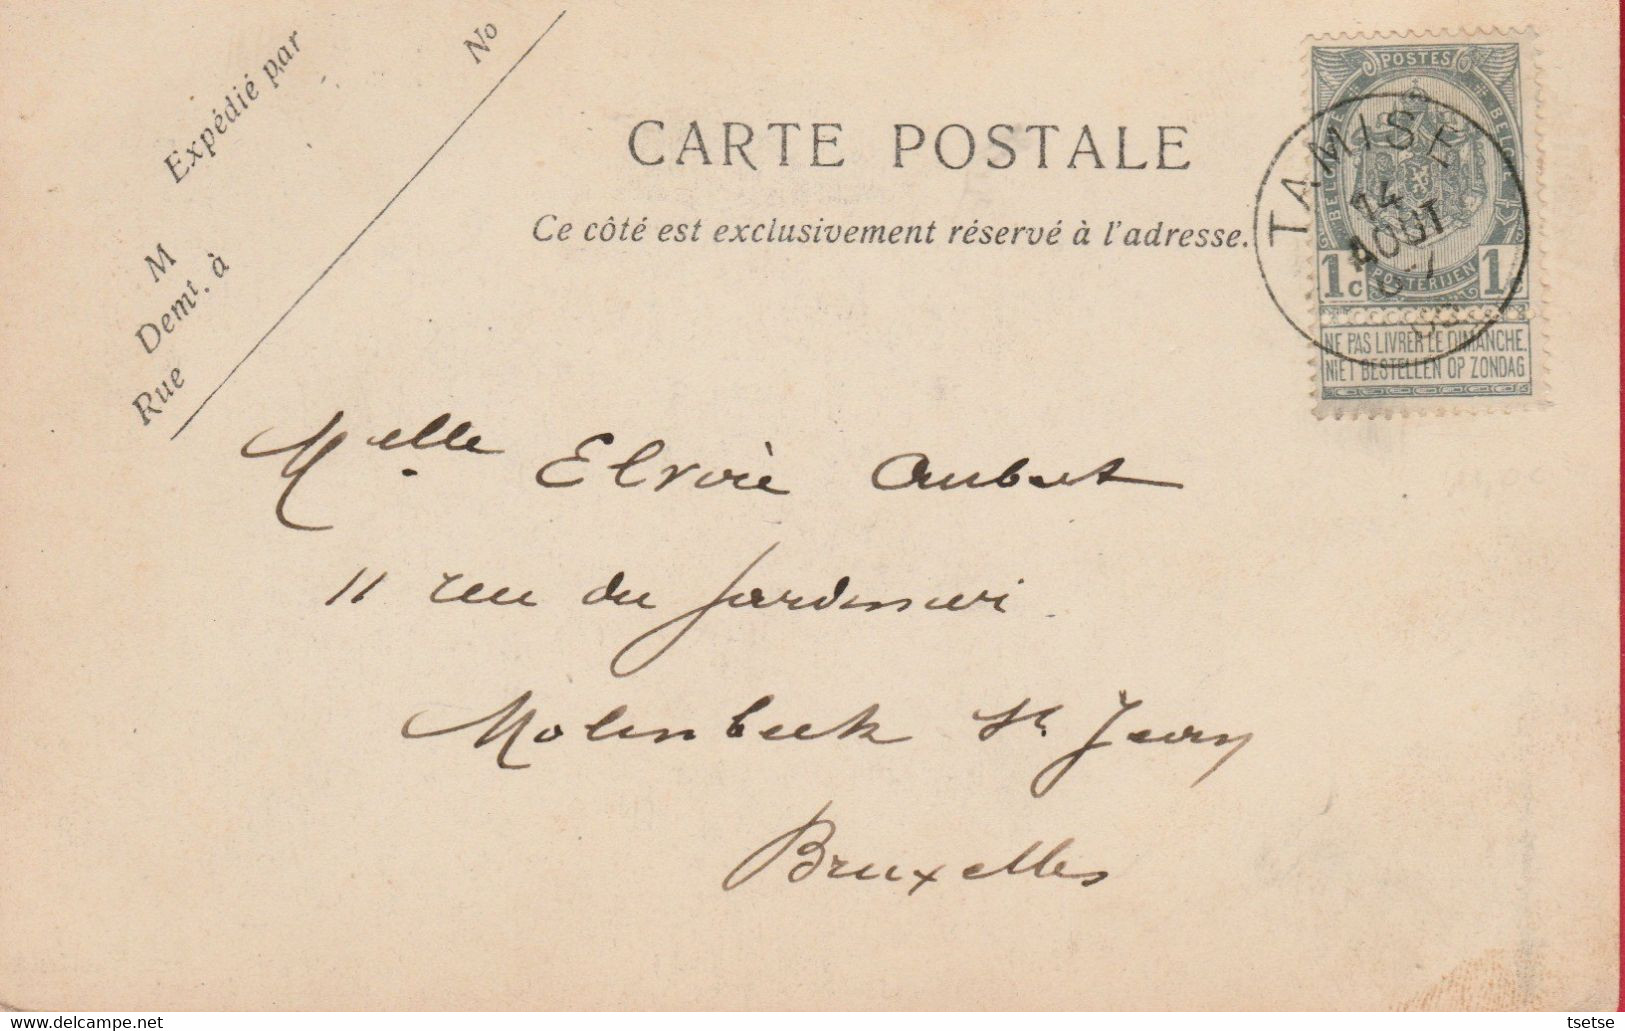 Expédié par
No
M
Demt. à
Rue
CARTE POSTALE
Ce côté est exclusivement réservé à l'adresse.
POSTES
BELGIQUE BELGIE
1c POSTERIJEN 1c
NE PAS LIVRER LE DIMANCHE.
NIET BESTELLEN OP ZONDAG
TAMISE
14
AOUT
Melle Elvire Aubert
11 rue du Jardinier
Molenbeek St Jean
Bruxelles
tsetse